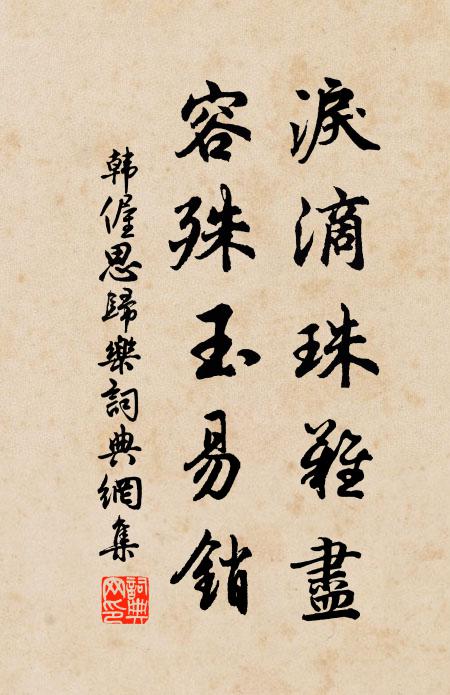 淚滴珠難盡
容殊玉易銷
韓偓思歸樂詞典網集
詞典網印